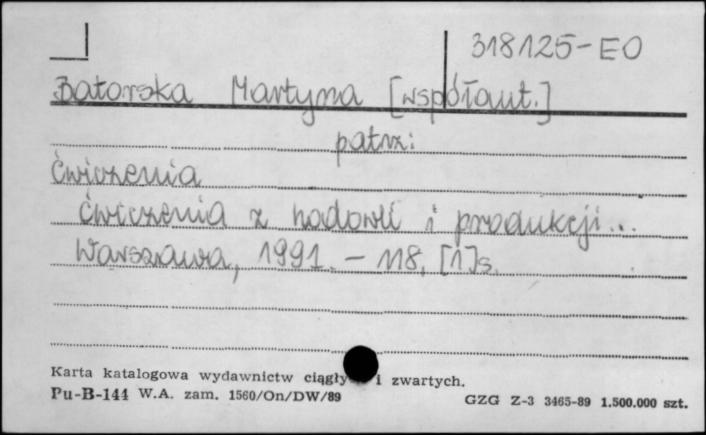 318125-EO
Batorska Martyna [współaut.]
patrz:
Ćwiczenia
ćwiczenia z hodowli i produkcji...
Warszawa, 1991. - 118, [1]s.
Karta katalogowa wydawnictw ciągły i zwartych.
Pu-B-144 W.A. zam. 1560/On/DW/89
GZG Z-3 3465-89 1.500.000 szt.